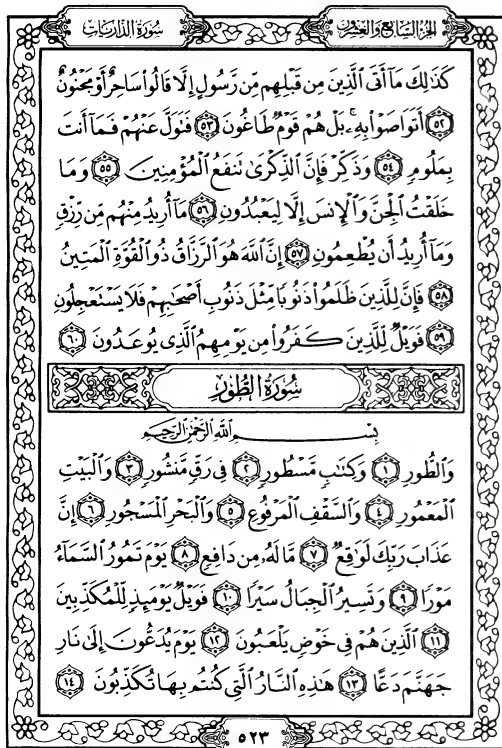 الجزء السابع والعشرون
سورة الذاريات
كَذَٰلِكَ مَآ أَتَى ٱلَّذِينَ مِن قَبْلِهِم مِّن رَّسُولٍ إِلَّا قَالُوا۟ سَاحِرٌ أَوْ مَجْنُونٌ
﴿٥٢﴾ أَتَوَاصَوْا۟ بِهِۦ ۚ بَلْ هُمْ قَوْمٌ طَاغُونَ ﴿٥٣﴾ فَتَوَلَّ عَنْهُمْ فَمَآ أَنتَ
بِمَلُومٍ ﴿٥٤﴾ وَذَكِّرْ فَإِنَّ ٱلذِّكْرَىٰ تَنفَعُ ٱلْمُؤْمِنِينَ ﴿٥٥﴾ وَمَا
خَلَقْتُ ٱلْجِنَّ وَٱلْإِنسَ إِلَّا لِيَعْبُدُونِ ﴿٥٦﴾ مَآ أُرِيدُ مِنْهُم مِّن رِّزْقٍ
وَمَآ أُرِيدُ أَن يُطْعِمُونِ ﴿٥٧﴾ إِنَّ ٱللَّهَ هُوَ ٱلرَّزَّاقُ ذُو ٱلْقُوَّةِ ٱلْمَتِينُ
﴿٥٨﴾ فَإِنَّ لِلَّذِينَ ظَلَمُوا۟ ذَنُوبًا مِّثْلَ ذَنُوبِ أَصْحَٰبِهِمْ فَلَا يَسْتَعْجِلُونِ
﴿٥٩﴾ فَوَيْلٌ لِّلَّذِينَ كَفَرُوا۟ مِن يَوْمِهِمُ ٱلَّذِى يُوعَدُونَ ﴿٦٠﴾
سورة الطور
بِسْمِ ٱللَّهِ ٱلرَّحْمَٰنِ ٱلرَّحِيمِ
وَٱلطُّورِ ﴿١﴾ وَكِتَٰبٍ مَّسْطُورٍ ﴿٢﴾ فِى رَقٍّ مَّنشُورٍ ﴿٣﴾ وَٱلْبَيْتِ
ٱلْمَعْمُورِ ﴿٤﴾ وَٱلسَّقْفِ ٱلْمَرْفُوعِ ﴿٥﴾ وَٱلْبَحْرِ ٱلْمَسْجُورِ ﴿٦﴾ إِنَّ
عَذَابَ رَبِّكَ لَوَٰقِعٌ ﴿٧﴾ مَّا لَهُۥ مِن دَافِعٍ ﴿٨﴾ يَوْمَ تَمُورُ ٱلسَّمَآءُ
مَوْرًا ﴿٩﴾ وَتَسِيرُ ٱلْجِبَالُ سَيْرًا ﴿١٠﴾ فَوَيْلٌ يَوْمَئِذٍ لِّلْمُكَذِّبِينَ
﴿١١﴾ ٱلَّذِينَ هُمْ فِى خَوْضٍ يَلْعَبُونَ ﴿١٢﴾ يَوْمَ يُدَعُّونَ إِلَىٰ نَارِ
جَهَنَّمَ دَعًّا ﴿١٣﴾ هَٰذِهِ ٱلنَّارُ ٱلَّتِى كُنتُم بِهَا تُكَذِّبُونَ ﴿١٤﴾
٥٢٣